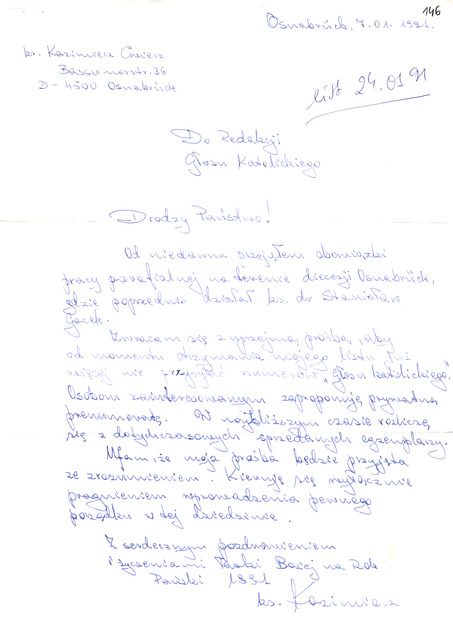 146
Osnabrück, 7.01.1991.
ks. Kazimierz
Bassumerstr. 36
D - 4500 Osnabrück
list 24.01.91
Do Redakcji
Głosu Katolickiego
Drodzy Państwo!
Od niedawna przejąłem obowiązki
pracy parafialnej na terenie diecezji Osnabrück,
gdzie poprzednio działał ks. dr Stanisław
Gacek.
Zwracam się z uprzejmą prośbą, aby
od momentu otrzymania mojego listu już
więcej nie przysyłać numerów "Głosu Katolickiego".
Osobom zainteresowanym zaproponuję prywatną
prenumeratę. W najbliższym czasie rozliczę
się z dotychczasowych sprzedanych egzemplarzy.
Ufam, że moja prośba będzie przyjęta
ze zrozumieniem. Kieruję się wyłącznie
pragnieniem wprowadzenia pewnego
porządku w tej dziedzinie.
Z serdecznym pozdrowieniem
i życzeniami Łaski Bożej na Rok
Pański 1991
ks. Kazimierz